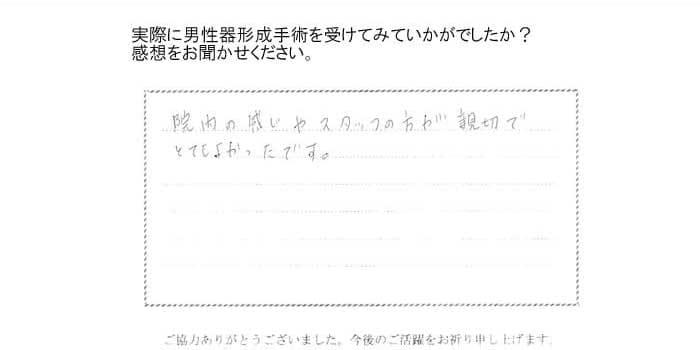 実際に男性器形成手術を受けてみていかがでしたか？
感想をお聞かせください。
院内の感じやスタッフの方が親切で
とてもよかったです。
ご協力ありがとうございました。今後のご活躍をお祈り申し上げます。